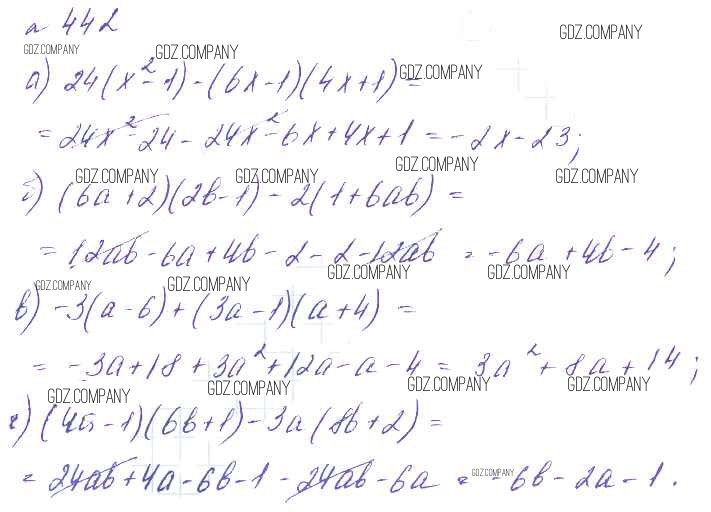 № 442
GDZ.COMPANY GDZ.COMPANY GDZ.COMPANY
а) 24(x² - 1) - (6x - 1)(4x + 1) =
GDZ.COMPANY
= 24x² - 24 - 24x² - 6x + 4x + 1 = -2x - 23;
GDZ.COMPANY GDZ.COMPANY GDZ.COMPANY GDZ.COMPANY
б) (6a + 2)(2b - 1) - 2(1 + 6ab) =
= 12ab - 6a + 4b - 2 - 2 - 12ab = -6a + 4b - 4;
GDZ.COMPANY GDZ.COMPANY GDZ.COMPANY GDZ.COMPANY
в) -3(a - 6) + (3a - 1)(a + 4) =
= -3a + 18 + 3a² + 12a - a - 4 = 3a² + 8a + 14;
GDZ.COMPANY GDZ.COMPANY GDZ.COMPANY GDZ.COMPANY
г) (4a - 1)(6b + 1) - 3a(8b + 2) =
= 24ab + 4a - 6b - 1 - 24ab - 6a = -6b - 2a - 1.
GDZ.COMPANY